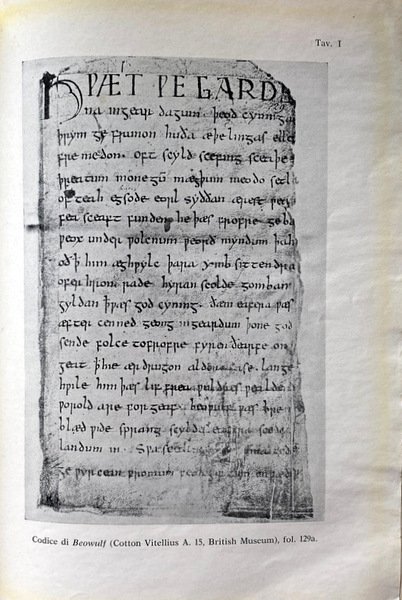 Tav. I
HǷÆT ǷE GARDE
na ingear dagum. þeod cyninga
þrym ge frunon huða æþelingas elle
fre medon. oft scyld scefing sceaþe
þreatum monegū mægþum meodo setla
of teah egsode eorl syððan ærest ƿear
fea sceaft funden he þæs frofre geba
ƿeox under ƿolcnum ƿeorð myndum þah
oð ꝥ him æghƿylc þara ymb sittendra
ofer hron rade hyran scolde gomban
gyldan ꝥ ƿæs god cyning. ðæm eafera ƿæs
æfter cenned geong ingeardum þone god
sende folce tofrofre fyren ðearfe on
geat ꝥ hie ær drugon aldor ase. lange
hƿile him þæs lif frea ƿuldres ƿealde
ƿorold are for geaf. beoƿulf ƿæs breme
blæd ƿide sprang scyldes eafera scede
landum in. Sƿa guma gode
ge ƿyrcean fromum
Codice di Beowulf (Cotton Vitellius A. 15, British Museum), fol. 129a.